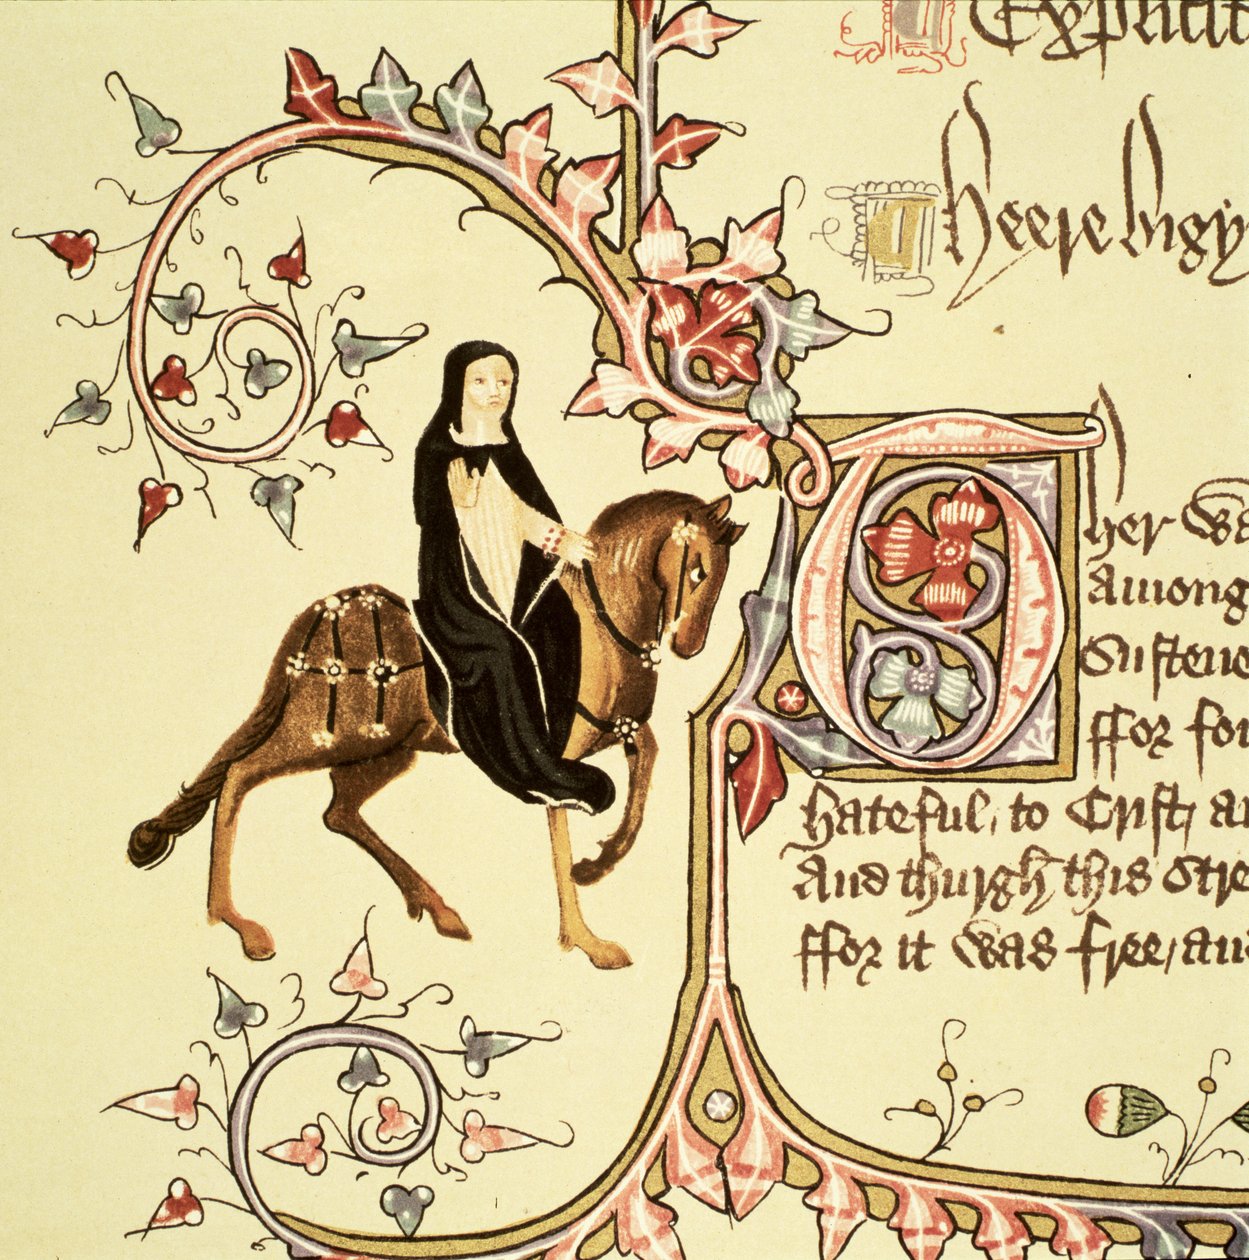 Explicit
Heere bigy
Ther wa
Among
Sustene
ffor fou
hateful / to Crist / a
And thurgh this stre
ffor it was free / an